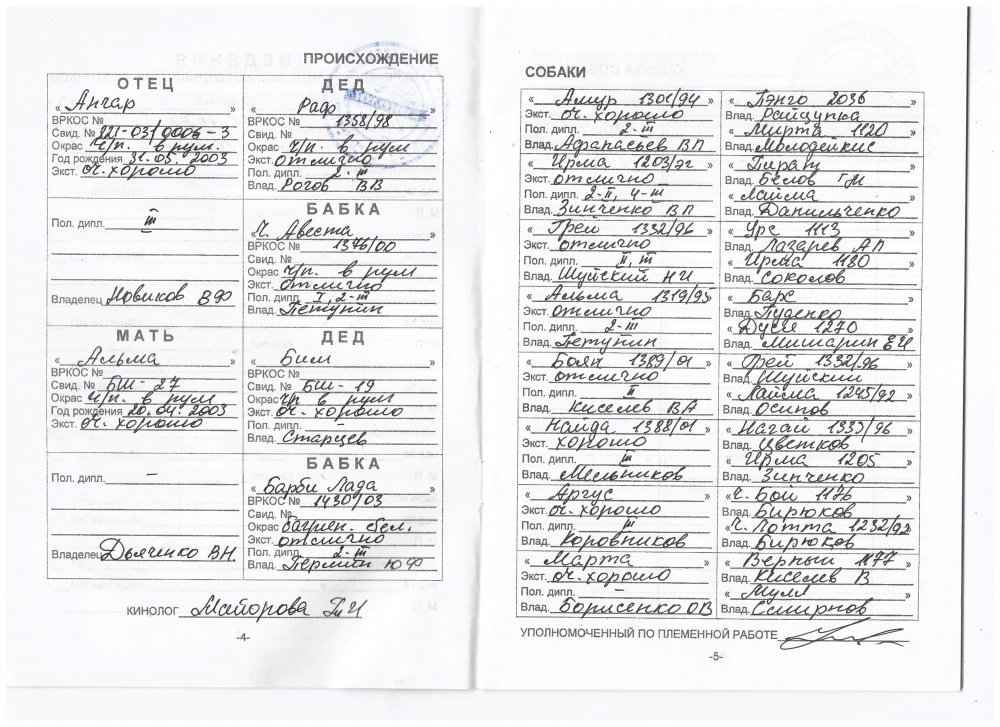 ПРОИСХОЖДЕНИЕ
ОТЕЦ
« Ангар »
ВРКОС №
Свид. № 221-03/0006-3
Окрас ч/п. в рум.
Год рождения 31.05.2003
Экст. оч. хорошо
Пол. дипл. III
Владелец Новиков ВФ
ДЕД
« Раф »
ВРКОС № 1358/98
Свид. №
Окрас ч/п. в рум
Экст. отлично
Пол. дипл. 2-III
Влад. Рогов ВВ
БАБКА
« Ч. Авеста »
ВРКОС № 1346/00
Свид. №
Окрас ч/п. в рум
Экст. отлично
Пол. дипл. I, 2-III
Влад. Петупин
МАТЬ
« Альма »
ВРКОС №
Свид. № БШ-27
Окрас ч/п. в рум
Год рождения 20.04.2003
Экст. оч. хорошо
Пол. дипл. –
Владелец Дьяченко ВН.
ДЕД
« Бим »
ВРКОС №
Свид. № БШ-19
Окрас ч/п в рум
Экст. оч. хорошо
Пол. дипл. –
Влад. Старцев
БАБКА
« Барби Лада »
ВРКОС № 1430/03
Свид. №
Окрас багрян. бел.
Экст. отлично
Пол. дипл. 2-III
Влад. Пермин ЮФ
КИНОЛОГ Майорова
-4-
СОБАКИ
« Амур 1301/94 »
Экст. оч. хорошо
Пол. дипл. 2-III
Влад. Афанасьев ВП
« Ирма 1203/эг »
Экст. отлично
Пол. дипл. 2-II, 4-III
Влад. Зинченко ВП
« Грей 1332/96 »
Экст. отлично
Пол. дипл. II, III
Влад. Шуйский НИ
« Альма 1319/95 »
Экст. отлично
Пол. дипл. 2-III
Влад. Петупин
« Боян 1389/01 »
Экст. отлично
Пол. дипл. II
Влад. Киселев ВА
« Найда 1388/01 »
Экст. хорошо
Пол. дипл. III
Влад. Мельников
« Аргус »
Экст. оч. хорошо
Пол. дипл. III
Влад. Коровников
« Марта »
Экст. оч. хорошо
Пол. дипл. –
Влад. Борисенко ОВ
« Гэнго 2036 »
Влад. Райцупка
« Мирта 1120 »
Влад. Молодейкис
« Пират »
Влад. Белов ГМ
« Лайма »
Влад. Данильченко
« Урс 1113 »
Влад. Лазарев АП
« Ирма 1180 »
Влад. Соколов
« Барс »
Влад. Руденко
« Дуся 1270 »
Влад. Мишарин ЕИ
« Грей 1332/96 »
Влад. Шуйский
« Лайма 1245/92 »
Влад. Осипов
« Нагай 1333/96 »
Влад. Цветков
« Ирма 1205 »
Влад. Зинченко
« Ч. Бой 1176 »
Влад. Бирюков
« Ч. Лотта 1232/92 »
Влад. Бирюков
« Верный 1177 »
Влад. Киселев В
« Муля »
Влад. Смирнов
УПОЛНОМОЧЕННЫЙ ПО ПЛЕМЕННОЙ РАБОТЕ
-5-